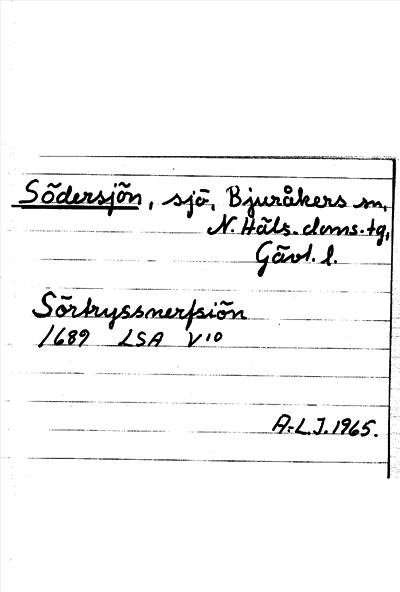 Södersjön, sjö, Bjuråkers sn,
N. Häls. doms. tg,
Gävl. l.
Sörtryssnerfsiön
1689 LSA V10
A.-L.J. 1965.